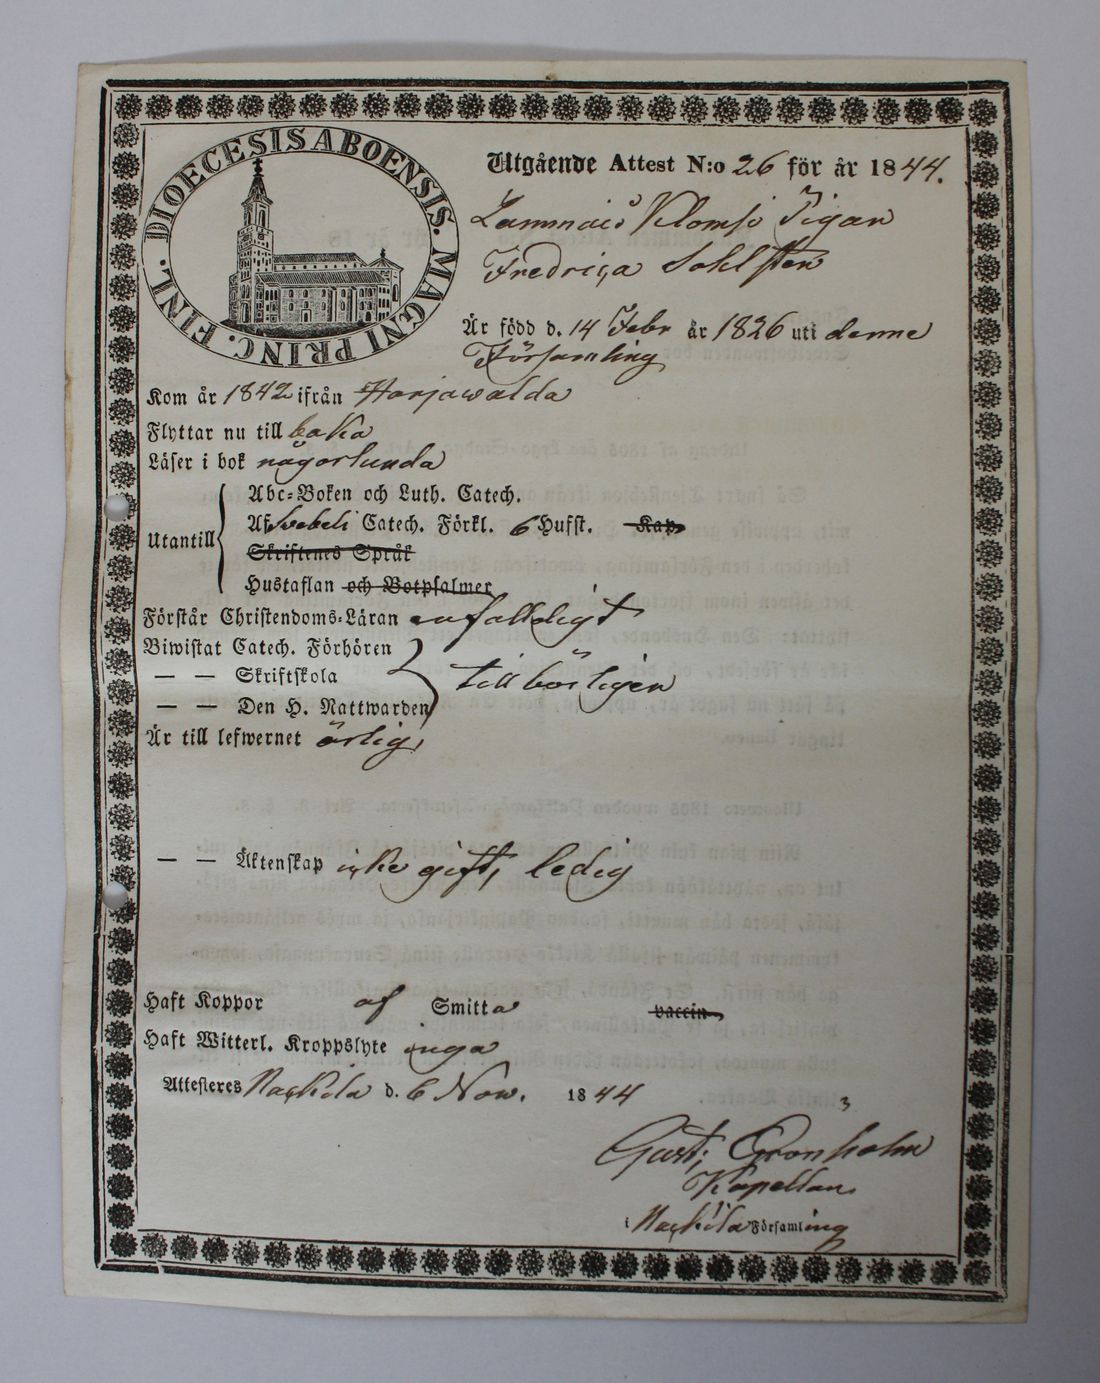 DIOECESIS ABOENSIS. MAGNI PRINC. FINL.
Utgående Attest N:o 26 för år 1844.
Pigan
Fredrica Sohlsten
Är född d. 14 Febr år 1826 uti denne
Församling
Kom år 1842 ifrån Harjawalda
Flyttar nu till baka
Läser i bok någorlunda
Abc-Boken och Luth. Catech.
Utantill
Af Svebeli Catech. Förkl. 6 Hufst. Kap.
Skriftenes Språk
Hustaflan och Botpsalmer
Förstår Christendoms-Läran enfalldeligt
Biwistat Catech. Förhören
— — Skriftskola tillbörligen
— — Den H. Nattwarden
Är till lefwernet ärlig,
— — Äktenskap icke gift, ledig
Haft Koppor af Smitta vaccin
Haft Witterl. Kroppslyte inga
Attesteres Nackila d. 6 Nov. 1844
Gust: Gronholm
Kapellan
i Nackila Församling